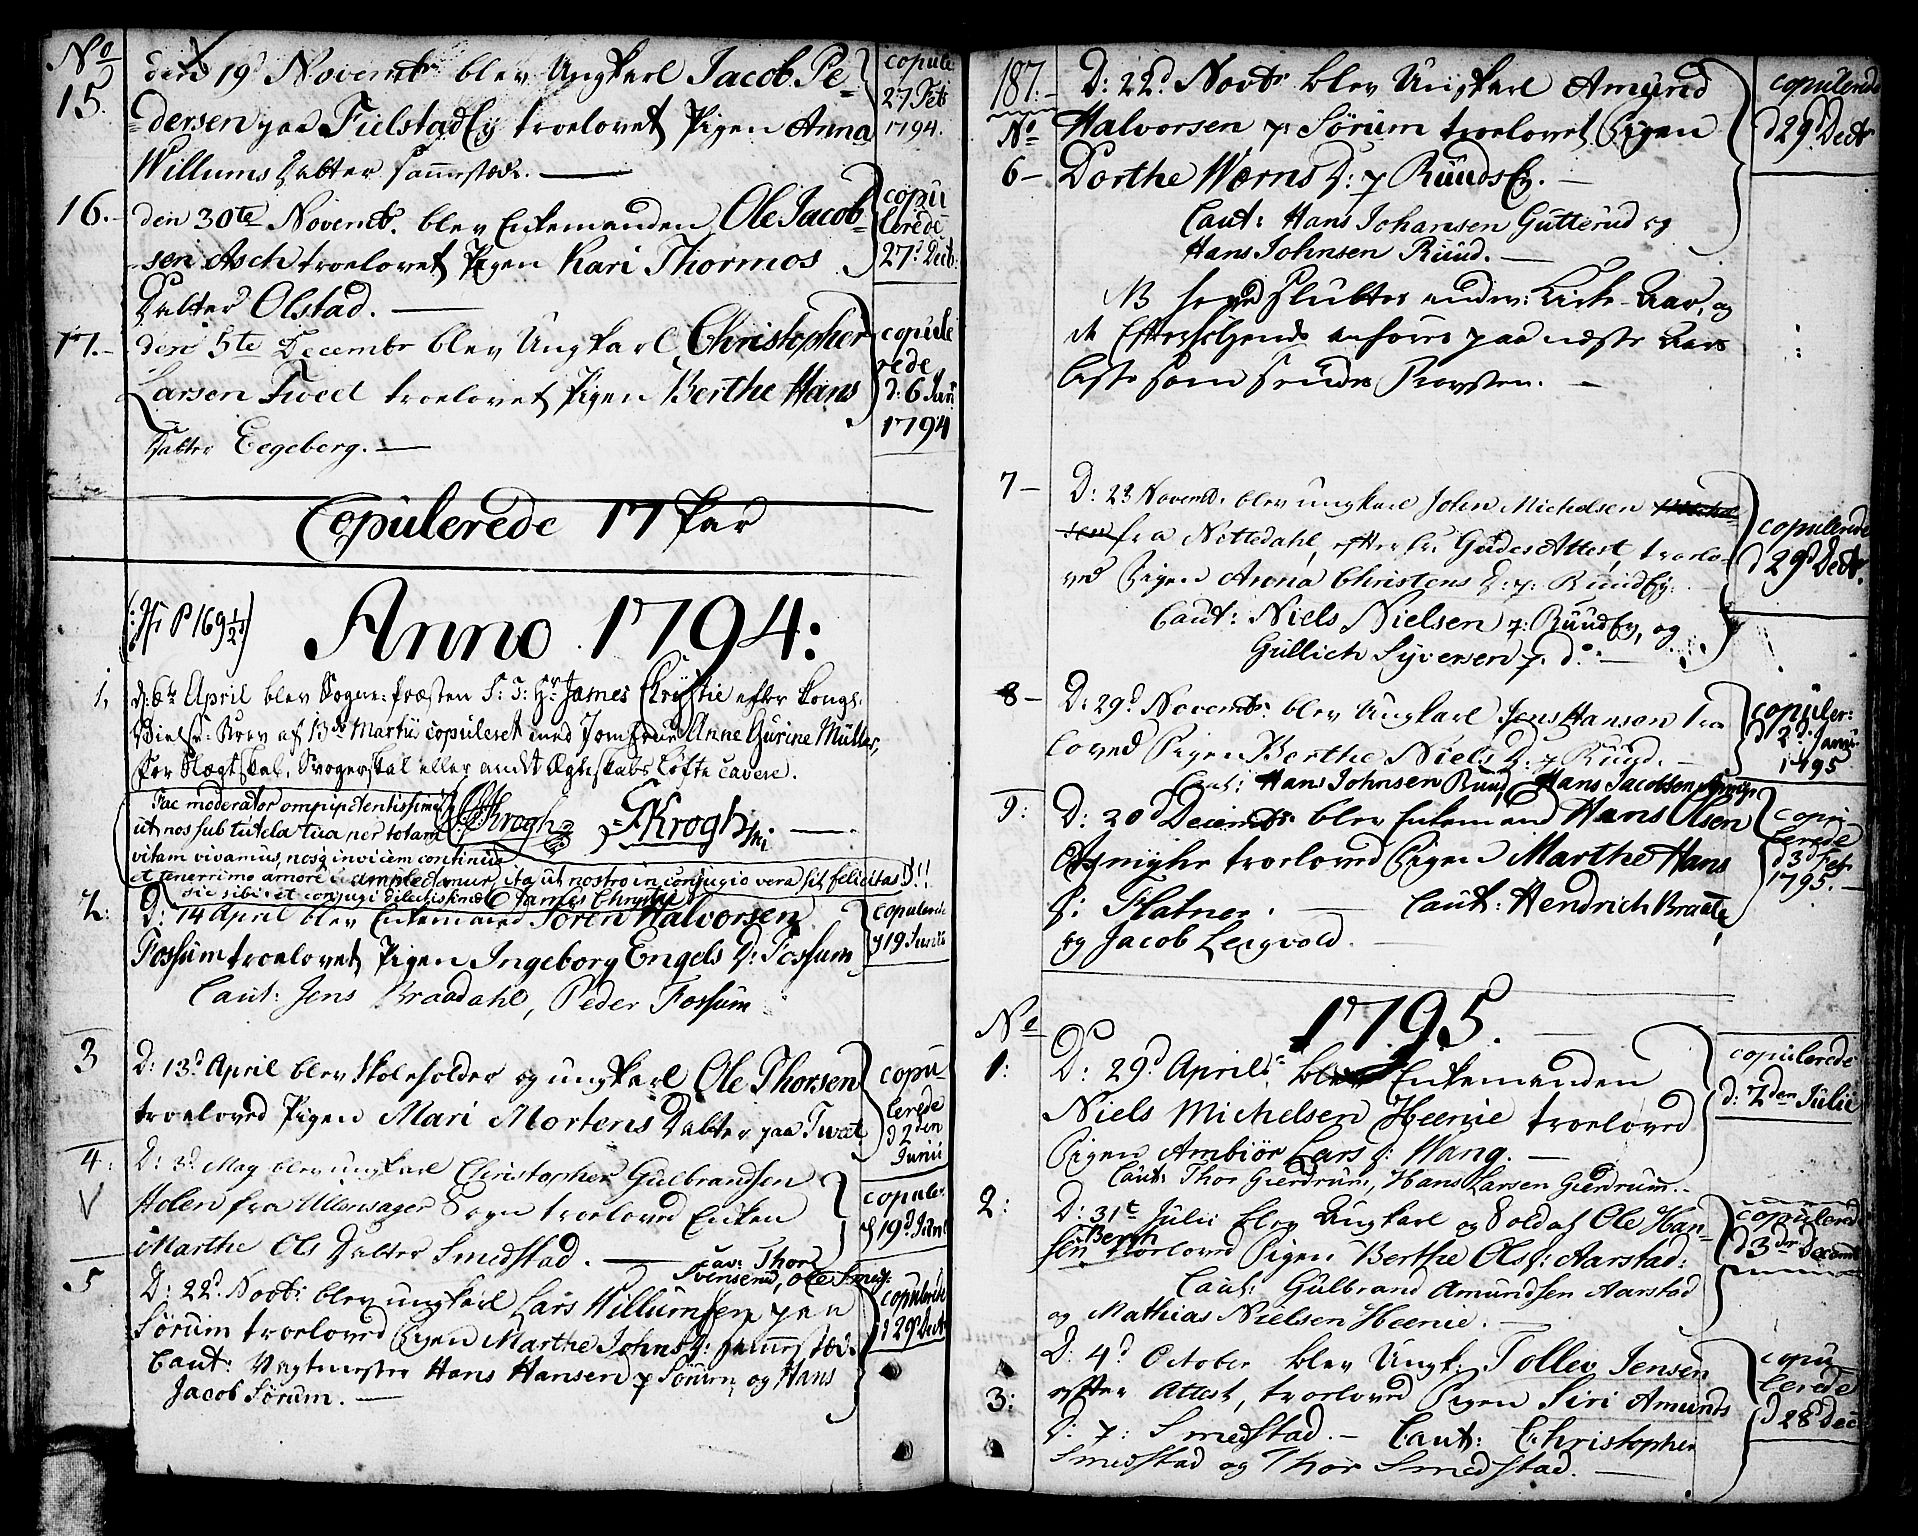 No
15.
den 19d Novembr blev Ungkarl Jacob Pe-
dersen paa FielstadEy troelovet Pigen Anna
Willums Datter sammestæds. —
copule
27 Feb
1794.
16.-
den 30te Novembr. blev Enkemanden Ole Jacob-
sen Asch troelovet Pigen Kari Thormos
Datter Olstad. —
copu
lerede
27d Decb:
17.-
den 5te Decembr blev Ungkarl Christopher
Larsen Tweet troelovet Pigen Berthe Hans
Datter Eegeberg. —
copule
rede
d: 6 Jan
1794
Copulerede 17 Par
(: P 169 1/2)
Anno 1794:
1,
d: 6te April blev Sogne-Præsten S: T: Hr James Chrystie efter Kongl.
Bref af 13de Martii copuleret med Jomfrue Anne Gurine Müller,
for Slægtskab, Svogerskab eller andet Ægteskabs Løfte cavere.
Fac moderator omnipotentissime
ut nos sub tutela tua per totam
Krogh
Krogh
vitam vivamus, nosq invicem continuo
et tenerrimo amore amplectamur, ita ut nostro in conjugio vera sit felicitas D!!
sic sibi et conjugi dilectissimæ James Chrystie
2:
D: 14 April blev Enkemand Søren Halvorsen
Fossum troelovet Pigen Ingeborg Engels D: Fossum
Caut: Jens Braadahl, Peder Fossum
copulerede
d 19 Junii
3
D: 13d April blev Skoleholder og ungkarl Ole Thorsen
troeloved Pigen Mari Mortens Datter paa Twæt
copu-
lerede
d 2den
Junii
4:
V
D: 3d May blev ungkarl Christopher Gulbrandsen
Holen fra Ullensager Sogn troeloved Enken
Marthe Ols Datter Smedstad. —
cav: Thor
Svenserud, Ole Smed:
copuler
d 19d Juni
5
D: 22d Novbr: blev ungkarl Lars Willumsen paa
Sørum troeloved Pigen Marthe Johns D: sammestæds
Caut: Vagtmester Hans Hansen p Sørum, og Hans
Jacob Sørum. —
copulerede
d 29d Decbr
187.-
No
6-
D: 22d Novbr blev Ungkarl Amund
Halvorsen p: Sørum troelovet Pigen
Dorthe Wærns D: p RuudsEy. —
Caut: Hans Johansen Gutterud og
Hans Johnsen Ruud. —
copulerede
d 29d Decbr
NB slutter Kirke-Aar, og
de Efterfølgende anføres paa næste Aars
Liste som sendes Provsten. —
7-
D: 23 Novembr. blev ungkarl John Michelsen
fra Nittedahl, efter Hr. Gudes Attest, troelo-
ved Pigen Anna Christens D: p: RuudEy.
Caut: Niels Nielsen p: RuudEy, og
Gullich Syversen p. do. —
copulerede
d 29d Decbr.
8-
D: 29d Novembr. blev Ungkarl Jens Hansen troe
loved Pigen Berthe Niels D: p Ruud. —
Caut: Hans Johnsen Ruud, Hans Jacobsen
copuler:
d 2d Janu
1795
9:
D: 20d Decembr blev Enkemand Hans Olsen
troeloved Pigen Marthe Hans
D: Flatner. — Caut: Hendrich Braate,
og Jacob Leigvold. —
copu-
lerede
d 3d Feb
1795. —
1795.
No
1:
D: 29d Aprili: blev Enkemanden
Niels Michelsen Heenie troeloved
Pigen Ambiør Lars D: Wang. —
Caut: Thor Gierdrum, Hans Larsen Gierdrum. -
copulerede
d: 2den Julii
2:
D: 31t Julii blev Ungkarl og Soldat Ole Han-
sen Bergh troeloved Pigen Berthe Ols D: Aarstad:
Caut: Gulbrand Amundsen Aarstad
og Mathias Nielsen Heenie. —
copulerede
d 3die Decembr
3:
D: 4d October blev Ungk: Tollev Jensen
efter Attest, troeloved Pigen Siri Amunds
D: p: Smedstad. - Caut: Christopher
Smedstad og Thor Smedstad. —
copu
lerede
d 28d Dec